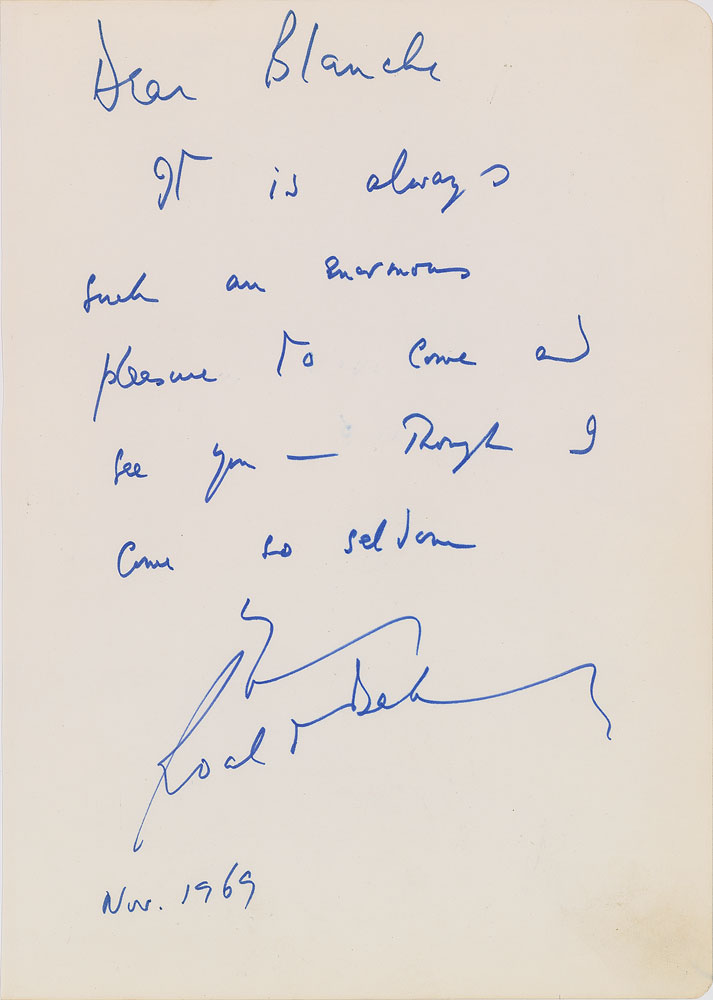 Dear Blanche
It is always
such an enormous
pleasure to come and
see you — Though I
come so seldom
Roald Dahl
Nov. 1969